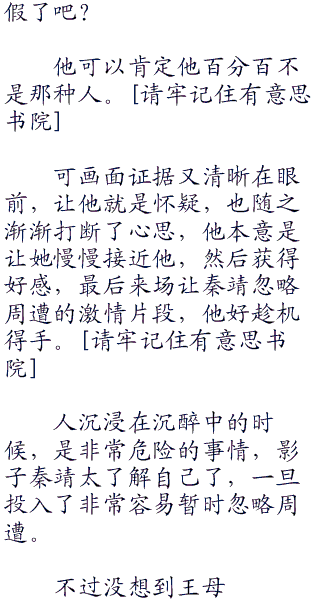 假了吧？
他可以肯定他百分百不
是那种人。[请牢记住有意思
书院]
可画面证据又清晰在眼
前，让他就是怀疑，也随之
渐渐打断了心思，他本意是
让她慢慢接近他，然后获得
好感，最后来场让秦靖忽略
周遭的激情片段，他好趁机
得手。[请牢记住有意思书
院]
人沉浸在沉醉中的时
候，是非常危险的事情，影
子秦靖太了解自己了，一旦
投入了非常容易暂时忽略周
遭。
不过没想到王母